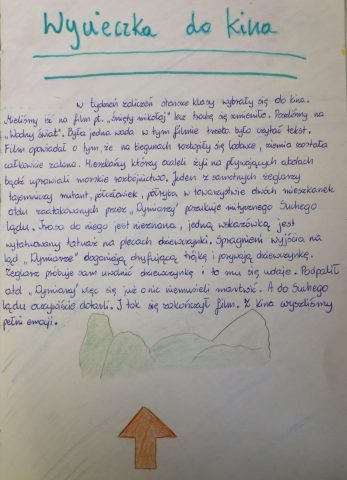 Wycieczka do kina
W tydzień zaliczeń starsze klasy wybrały się do kina.
Mieliśmy iść na film pt. „Święty mikołaj" lecz trochę się zmieniło. Poszliśmy na
„Wodny świat". Była jedna wada w tym filmie trzeba było czytać tekst.
Film opowiadał o tym, że na biegunach roztopiły się lodowce, ziemia została
całkowicie zalana. Mieszkańcy którzy ocaleli żyli na pływających atolach
bądź uprawiali morskie rozbójnictwo. Jeden z samotnych żeglarzy
tajemniczy mutant, półczłowiek, półryba w towarzystwie dwóch mieszkanek
atolu zaatakowanych przez „Dymiarzy" poszukuje mitycznego Suchego
lądu. Trasa do niego jest nieznana, jedną wskazówką jest
wytatuowany tatuaż na plecach dziewczynki. Spragnieni wyjścia na
ląd „Dymiarze" doganiają dryfującą trójkę i porywają dziewczynkę.
Żeglarz próbuje sam uwolnić dziewczynkę i to mu się udaje. Podpalił
atol „Dymiarzy" więc się już o nic niemusieli martwić. A do Suchego
lądu oczywiście dotarli. I tak się zakończył film. Z kina wyszliśmy
pełni emocji.